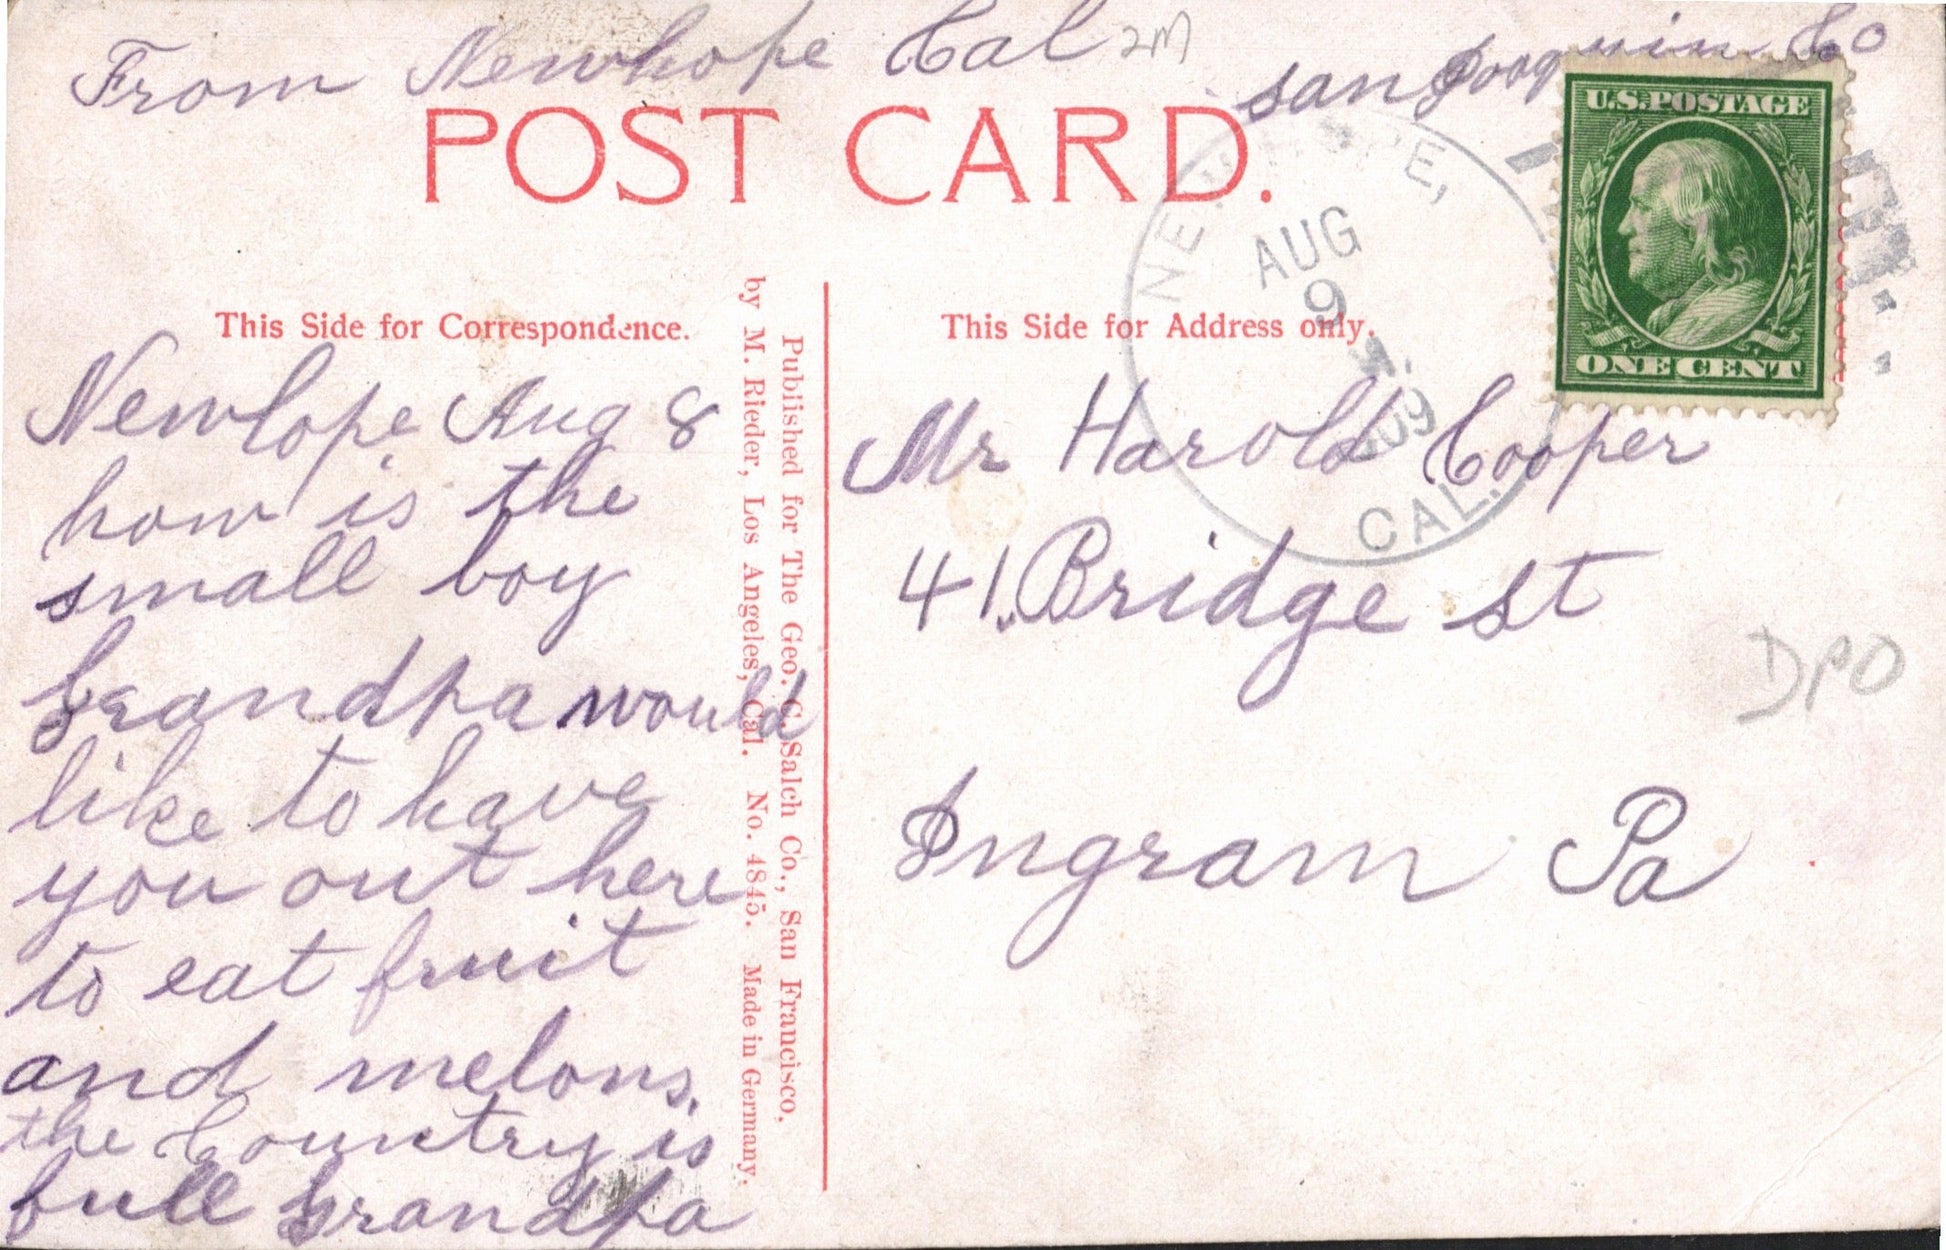 From Newhope Cal 2M
San Joaquin Co
POST CARD.
U.S. POSTAGE
ONE CENT
NEW HOPE,
AUG
9
1909
CAL.
This Side for Correspondence.
This Side for Address only.
Newhope Aug 8
how is the
small boy
Grandpa would
like to have
you out here
to eat fruit
and melons.
the Country is
full Grandpa
Published for The Geo. C. Salch Co., San Francisco,
by M. Rieder, Los Angeles, Cal. No. 4845. Made in Germany.
Mr Harold Cooper
41 Bridge st
Ingram Pa
DPO